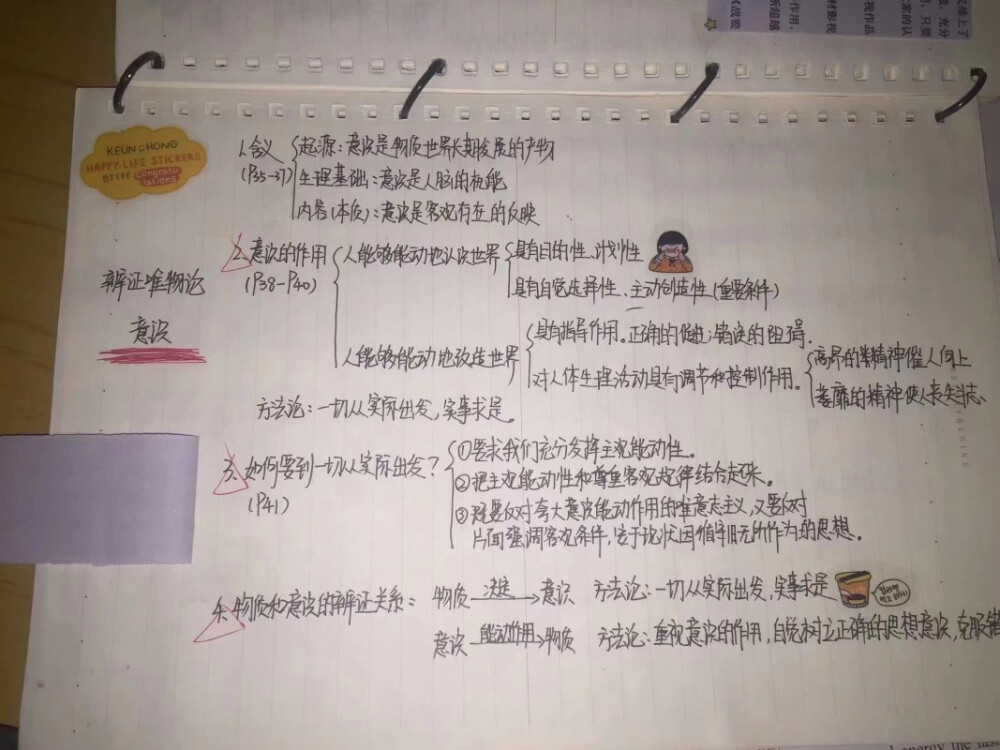 KEUN HONG
HAPPY LIFE STICKERS
congratu
lations
1.含义
(P35-37)
起源：意识是物质世界长期发展的产物
生理基础：意识是人脑的机能
内容(本质)：意识是客观存在的反映
辩证唯物论
意识
2.意识的作用
(P38-P40)
人能够能动地认识世界
具有目的性、计划性
具有自觉选择性、主动创造性(重要条件)
人能够能动地改造世界
具有指导作用。正确的促进；错误的阻碍.
对人体生理活动具有调节和控制作用。
高昂的精神催人向上
萎靡的精神使人丧失斗志.
方法论：一切从实际出发，实事求是。
3.如何要到一切从实际出发？
(P41)
①要求我们充分发挥主观能动性。
②把主观能动性和尊重客观规律结合起来。
③既要反对夸大意识能动作用的唯意志主义，又要反对
片面强调客观条件，安于现状因循守旧无所作为的思想。
4.物质和意识的辩证关系：
物质 决定 → 意识 方法论：一切从实际出发，实事求是
意识 能动作用 → 物质 方法论：重视意识的作用，自觉树立正确的思想意识，克服